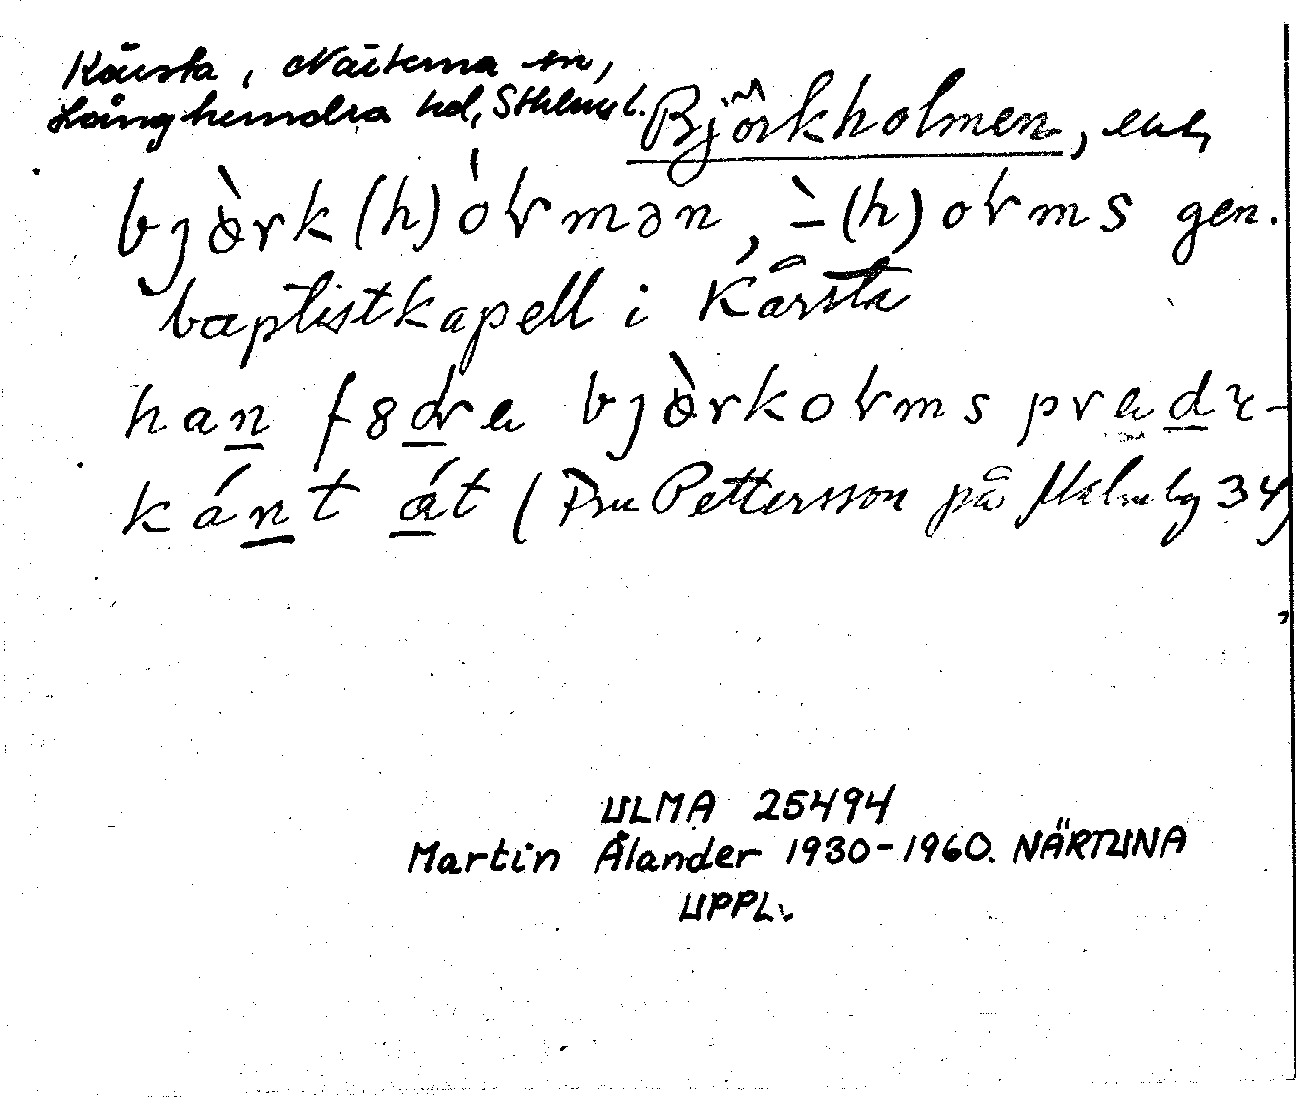 Kårsta, Närtuna sn,
Långhundra hd, Sthlms l.
Björkholmen,
bjòrk(h)ólmən, ̀-(h)olms gen.
baptistkapell i Kårsta
han födra bjòrkolms predi-
kánt át (Fru Pettersson på Malmby 34)
ULMA 25494
Martin Ålander 1930-1960. NÄRTUNA
UPPL.